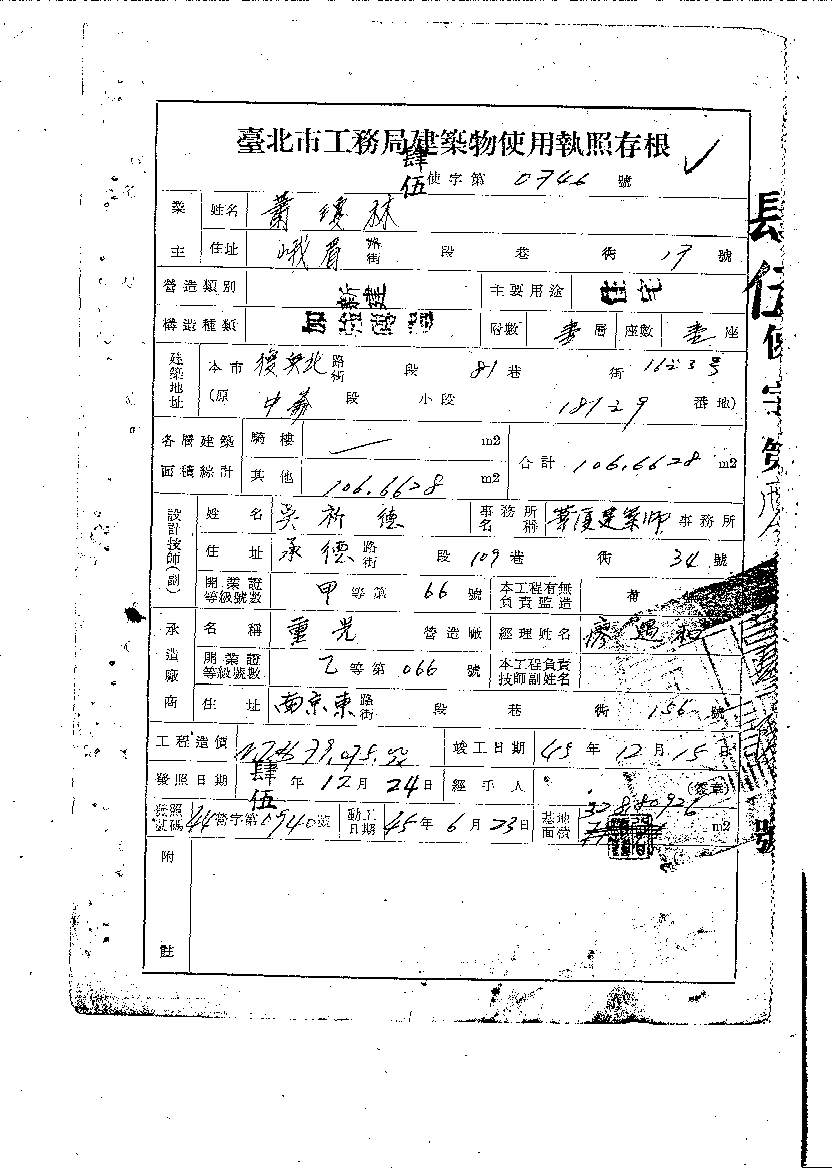 臺北市工務局建築物使用執照存根
肆伍 使字第 0746 號
業主 姓名 蕭 林
住址 峨眉 路街 段 巷 街 17 號
營造類別 新建 主要用途 住宅
構造種類 加強磚造 層數 壹 層 座數 壹 座
建築地址 本市 復興北 路街 段 81 巷 街 号
(原 中崙 段 小段 番地)
各層建築面積綜計 騎樓 — m2 合計 106.6628 m2
其他 106.6628 m2
設計技師(副) 姓名 吳祈德 事務所名稱 華廈建築師 事務所
住址 承德 路街 段 109 巷 街 34 號
開業證等級號數 甲 等第 66 號 本工程有無負責監造 有
承造廠商 名稱 重光 營造廠 經理姓名 廖
開業證等級號數 乙 等第 066 號 本工程負責技師副姓名
住址 南京東 路街 段 巷 街 156 號
工程造價 79,075.00 竣工日期 45 年 12 月 15 日
發照日期 肆伍 年 12 月 24 日 經手人 (簽章)
號碼 44 營字第 0940 號 動工日期 45 年 6 月 23 日 基地面積 m2
附註
肆伍使字第 號